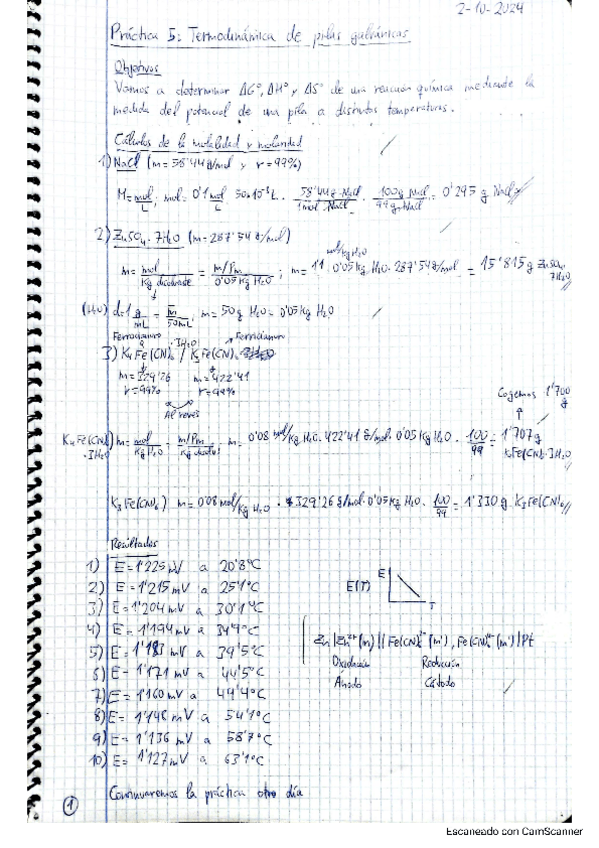 2-10-2024
Práctica 5: Termodinámica de pilas galvánicas
Objetivos
Vamos a determinar ΔG°, ΔH° y ΔS° de una reacción química mediante la
medida del potencial de una pila a distintas temperaturas.
Cálculos de la molalidad y molaridad
1) NaCl (m = 58'44 g/mol y r = 99%)
M = mol/L, mol = 0'1 mol/L · 50·10⁻³ L · 58'44 g NaCl/1 mol NaCl · 100 g NaCl/99 g NaCl = 0'295 g NaCl //
2) ZnSO₄ · 7H₂O (m = 287'54 g/mol)
m = mol/Kg disolvente = m/Pm/0'05 Kg H₂O ; m = 1'1 mol/kg H₂O · 0'05 Kg H₂O · 287'54 g/mol = 15'815 g ZnSO₄ 7H₂O //
(H₂O) d = 1 g/mL = m/50 mL, m = 50 g H₂O = 0'05 Kg H₂O
Ferrocianuro Ferricianuro
3) K₄Fe(CN)₆ · 3H₂O / K₃Fe(CN)₆
m = 329'26 m = 422'41
r = 99% r = 99%
Al revés
Cogemos 1'700 g
K₄Fe(CN)₆ · 3H₂O) m = mol/Kg H₂O = m/Pm/Kg disolv ; m = 0'08 mol/Kg H₂O · 422'41 g/mol · 0'05 Kg H₂O · 100/99 = 1'707 g K₄Fe(CN)₆ · 3H₂O //
K₃Fe(CN)₆) m = 0'08 mol/Kg H₂O · 329'26 g/mol · 0'05 Kg H₂O · 100/99 = 1'330 g K₃Fe(CN)₆ //
Resultados
1) E = 1'225 mV a 20'8°C
2) E = 1'215 mV a 25'1°C
3) E = 1'204 mV a 30'1°C
4) E = 1'194 mV a 34'9°C
5) E = 1'183 mV a 39'5°C
6) E = 1'171 mV a 44'5°C
7) E = 1'160 mV a 49'4°C
8) E = 1'148 mV a 54'1°C
9) E = 1'136 mV a 58'7°C
10) E = 1'127 mV a 63'1°C
E(T) E T
Zn | Zn²⁺ (m) || Fe(CN)₆³⁻ (m'), Fe(CN)₆⁴⁻ (m') | Pt
Oxidación Reducción
Ánodo Cátodo
Continuaremos la práctica otro día
1
Escaneado con CamScanner